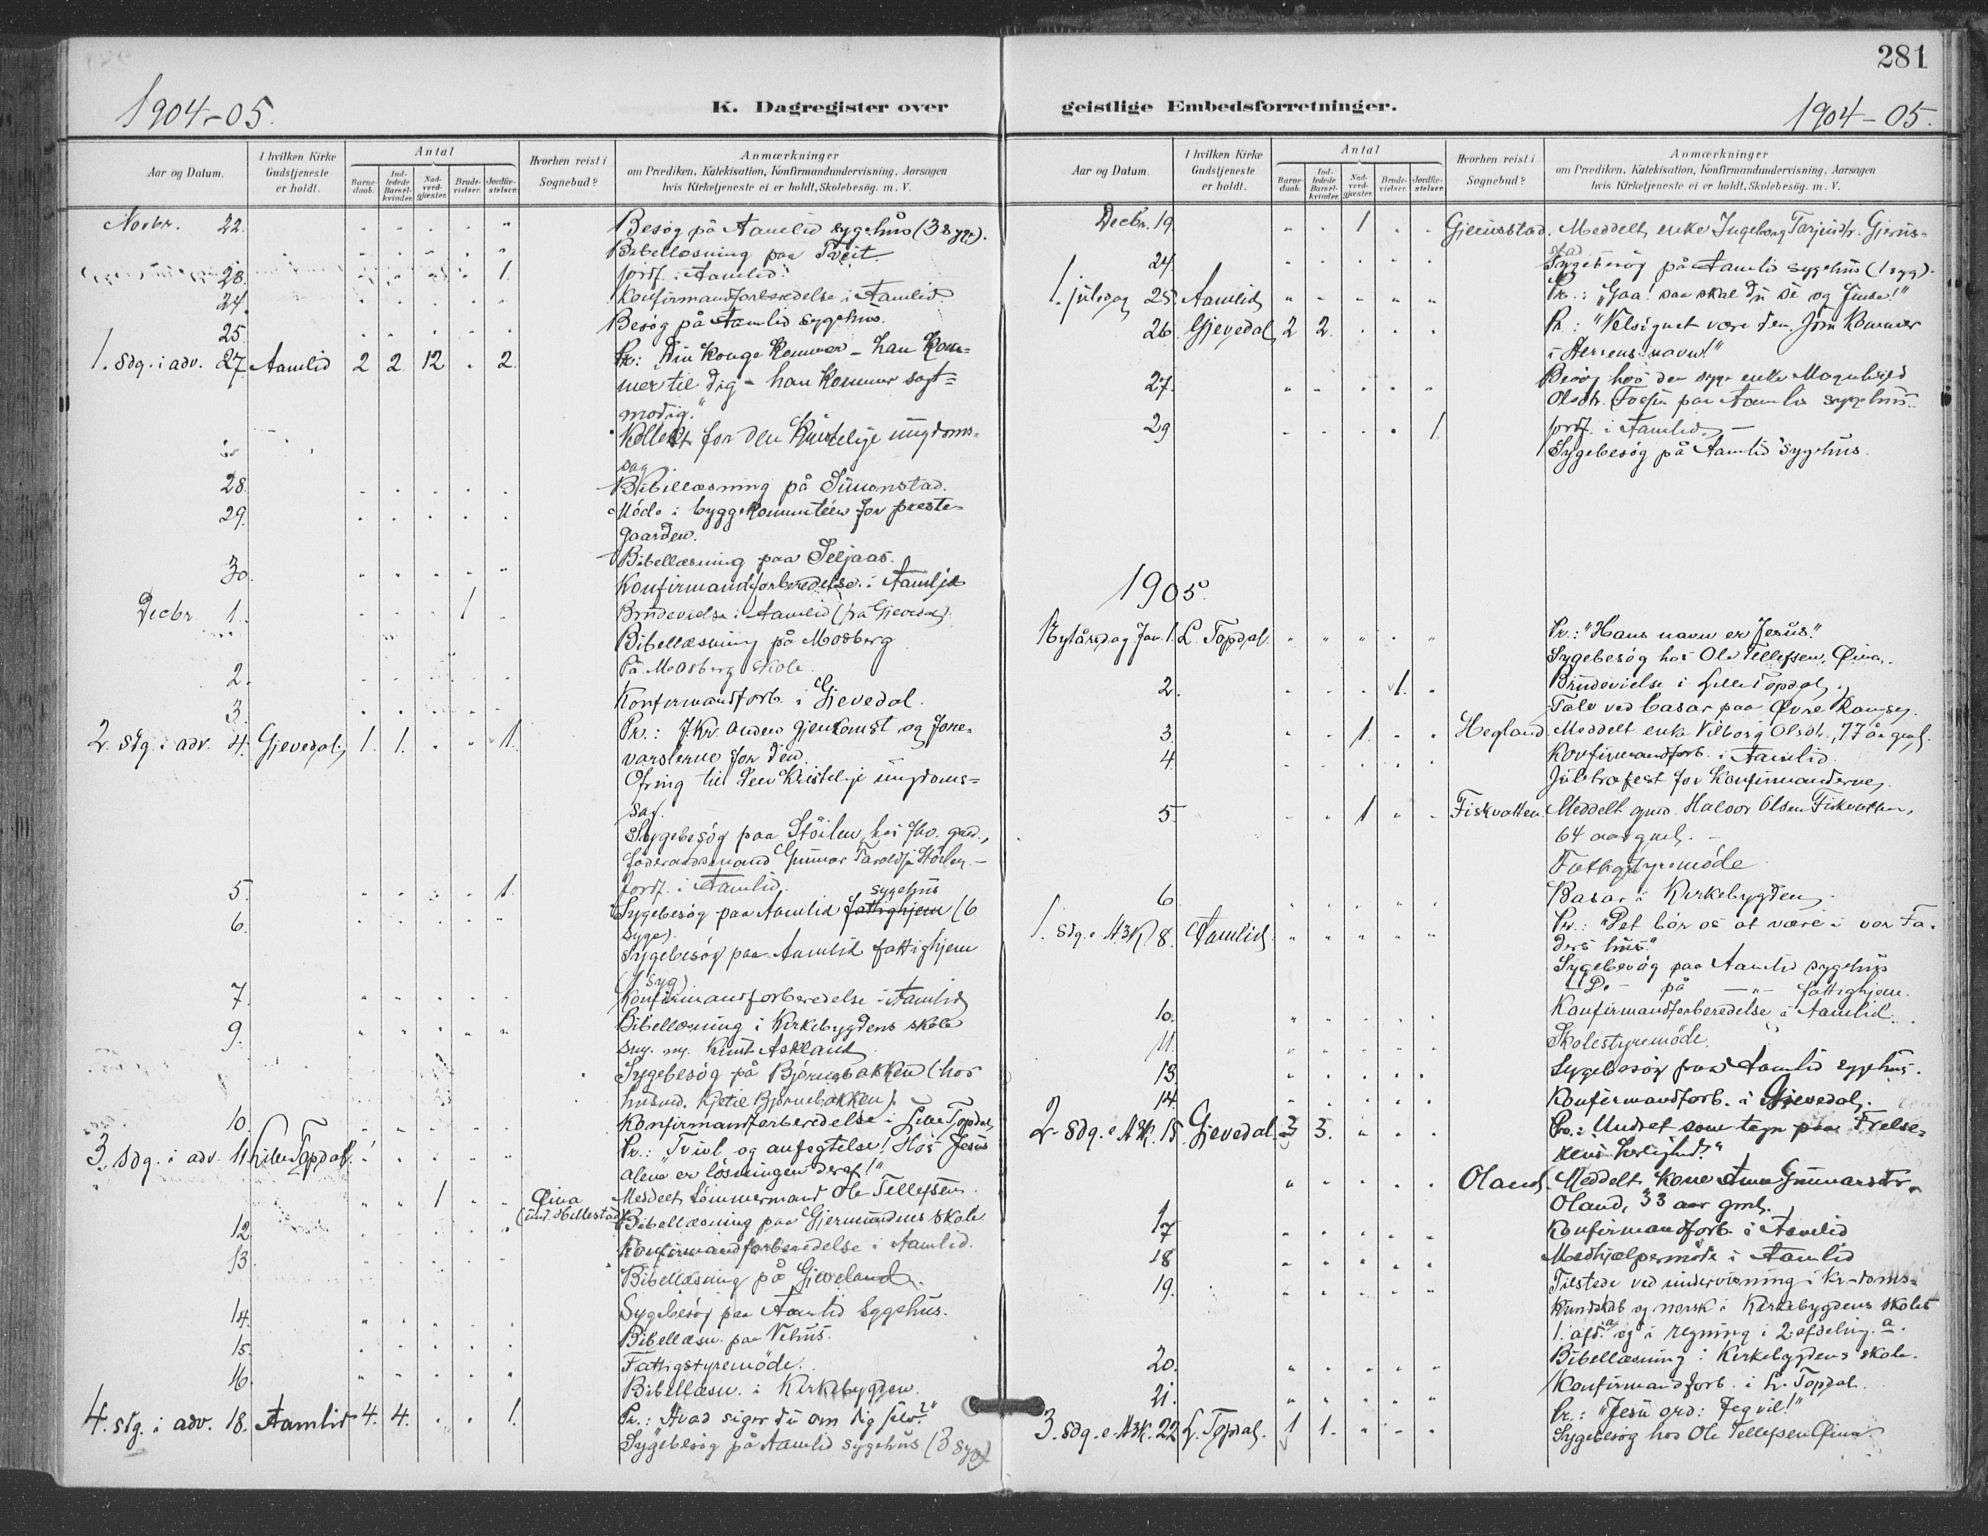 281
1904-05.
K. Dagregister over
geistlige Embedsforretninger.
1904-05.
Aar og Datum.
I hvilken Kirke Gudstjeneste er holdt.
Antal
Barne-daab.
Ind-ledede Barsel-kvinder.
Nad-verd-gjæster.
Brude-vielser.
Jordfæ-stelser.
Hvorhen reist i Sognebud?
Anmærkninger
om Prædiken, Katekisation, Konfirmandundervisning, Aarsagen
hvis Kirketjeneste ei er holdt, Skolebesøg. m. V.
Novbr. 22. Besøg på Aamlid sygehus (3 syge).
Bibellæsning paa Tveit
23. 1. Jordf. i Aamlid.
24. Konfirmandforberedelse i Aamlid
25. Besøg på Aamlid sygehus.
1. sdg. i adv. 27. Aamlid 2 2 12 2 Pr.: "Din Konge kommer – han kom-
mer til dig – han kommer sagt-
modig."
Kollekt for den kristelige ungdoms-
sag.
28. Bibellæsning på Simonstad.
29. Møde i byggekommiteen for preste-
gaarden.
Bibellæsning paa Seljaas.
30. Konfirmandforberedelse i Aamlid
Decbr. 1. 1 Brudevielse i Aamlid (fra Gjevedal).
Bibellæsning på Mosberg
2. På Mosberg skole.
3. Konfirmandforb. i Gjevedal.
2. sdg. i adv. 4. Gjevedal 1. 1. 1. Pr.: J. Kr. anden gjenkomst og fore-
varslerne for den.
Ofring til den kristelige ungdoms-
sag.
Sygebesøg paa Støilen hos
Gunnar Taraldsen Støilen. –
5. 1. Jordf. i Aamlid.
6. Sygebesøg paa Aamlid fattighjem sygehus (6
syge).
Sygebesøg paa Aamlid fattighjem
(1 syg)
7. Konfirmandforberedelse i Aamlid
9. Bibellæsning i Kirkebygdens skole
Knut Askland
Sygebesøg på Bjørnebakken (hos
husmd. Kjetil Bjørnebakken).
10. Konfirmandforberedelse i Lille Topdal
3. sdg. i adv. 11. Lille Topdal. Pr.: "Tvivl og anfegtelse! Hos Jesus
alene er løsningen deraf!"
1 Øina (und. Hillestad) Meddelt tømmermand Ole Tellefsen.
12. Bibellæsning paa Gjermundnes skole
13. Konfirmandforberedelse i Aamlid.
Bibellæsning på Gjeveland.
14. Sygebesøg paa Aamlid sygehus.
15. Bibellæsn. paa Vehus.
16. Fattigstyremøde.
Bibellæsn. i Kirkebygden.
4. sdg. i adv. 18. Aamlid 4. 4. 1. Pr.: "Hvad siger du om dig selv?"
Sygebesøg på Aamlid sygehus (3 syge)
Aar og Datum.
I hvilken Kirke Gudstjeneste er holdt.
Antal
Barne-daab.
Ind-ledede Barsel-kvinder.
Nad-verd-gjæster.
Brude-vielser.
Jordfæ-stelser.
Hvorhen reist i Sognebud?
Anmærkninger
om Prædiken, Katekisation, Konfirmandundervisning, Aarsagen
hvis Kirketjeneste ei er holdt, Skolebesøg. m. V.
Decbr. 19. 1 Gjerusstad. Meddelt enke Ingeborg Tarjeisdtr. Gjerus-
stad
24. Sygebesøg på Aamlid sygehus (1 syg).
1. juledag 25. Aamlid Pr.: "Gaa! saa skal du se og finde!"
26. Gjevedal 2 2. Pr.: "Velsignet være den, som kommer
i Herrens navn!"
27. Besøg hos den syge enke Magnhild
Olsdtr. paa Aamlid sygehus.
29 1. Jordf. i Aamlid. –
Sygebesøg på Aamlid sygehus.
1905.
Nytårsdag Jan. 1. L. Topdal. Pr.: "Hans navn er Jesus."
Sygebesøg hos Ole Tellefsen, Øina.
2. 1. Brudevielse i Lille Topdal.
Tale ved basar paa Øvre Ramse.
3. 1. Hegland Meddelt enke Vilborg Olsdtr., 77 år gml.
4. Konfirmandforb. i Aamlid.
Juletræfest for konfirmanderne.
5. 1 Fiskvatten. Meddelt gmd. Halvor Olsen Fiskvatten,
64 aar gml. –
Fattigstyremøde
6. Basar i Kirkebygden.
1. sdg. e. H3K 8. Aamlid. Pr.: "Det bør os at være i vor Fa-
ders hus."
Sygebesøg paa Aamlid sygehus
– Do – på – " – fattighjem.
10. Konfirmandforberedelse i Aamlid.
11. Skolestyremøde.
13. Sygebesøg paa Aamlid sygehus.
14. Konfirmandforb. i Gjevedal.
2. sdg. e. H3K. 15. Gjevedal 3 3. Pr.: Undret som tegn paa Frelse-
rens herlighed."
Oland. Meddelt kone Anne Gunnarsdtr.
Oland, 33 aar gml.
17 Konfirmandforb. i Aamlid
18 Medhjælpermøde i Aamlid
19. Tilstede ved undervisning i kr-doms-
kundskab og norsk i Kirkebygdens skoles
1. afd. og i regning i 2. afdeling.
20. Bibellæsning i Kirkebygdens skole.
21. Konfirmandforb. i L. Topdal.
3. sdg. e. H3K. 22 L. Topdal. 1 1. Pr.: "Jesu ord: Jeg vil!"
Sygebesøg hos Ole Tellefsen Øina